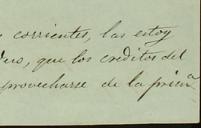 corrientes, las estoy
que los creditos del
provecharse de la prim^a